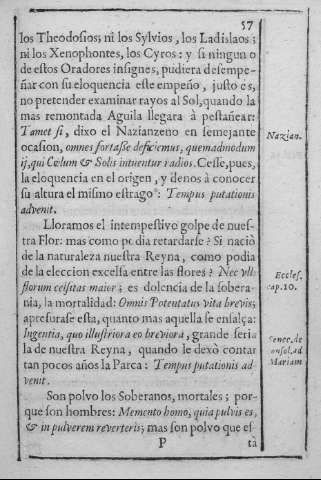 57
los Theodosios; ni los Sylvios, los Ladislaos;
ni los Xenophontes, los Cyros: y si ningun o
de estos Oradores insignes, pudiera desempe-
ñar con su eloquencia este empeño, justo es,
no pretender examinar rayos al Sol, quando la
mas remontada Aguila llegara à pestañear:
Tamet si, dixo el Nazianzeno en semejante
Nazian.
ocasion, omnes fortasse deficiemus, quemadmodum
ij, qui Cælum & Solis intuentur radios. Cesse, pues,
la eloquencia en el origen, y denos à conocer
su altura el mismo estrago: Tempus putationis
advenit.
Lloramos el intempestivo golpe de nues-
tra Flor: mas como podia retardarse? Si naciò
de la naturaleza nuestra Reyna, como podia
de la eleccion excelsa entre las flores? Nec
Eccles.
florum celsitas maior; es dolencia de la sobera-
cap. 10.
nia, la mortalidad: Omnis Potentatus vita brevis;
apresurase esta, quanto mas aquella se ensalça:
Ingentia, quo illustriora eo breviora, grande seria
Senec. de
la de nuestra Reyna, quando le dexò contar
consol. ad
tan pocos años la Parca: Tempus putationis ad-
Mariam
venit.
Son polvo los Soberanos, mortales; por-
que son hombres: Memento homo, quia pulvis es,
& in pulverem reverteris; mas son polvo que es-
P
tà